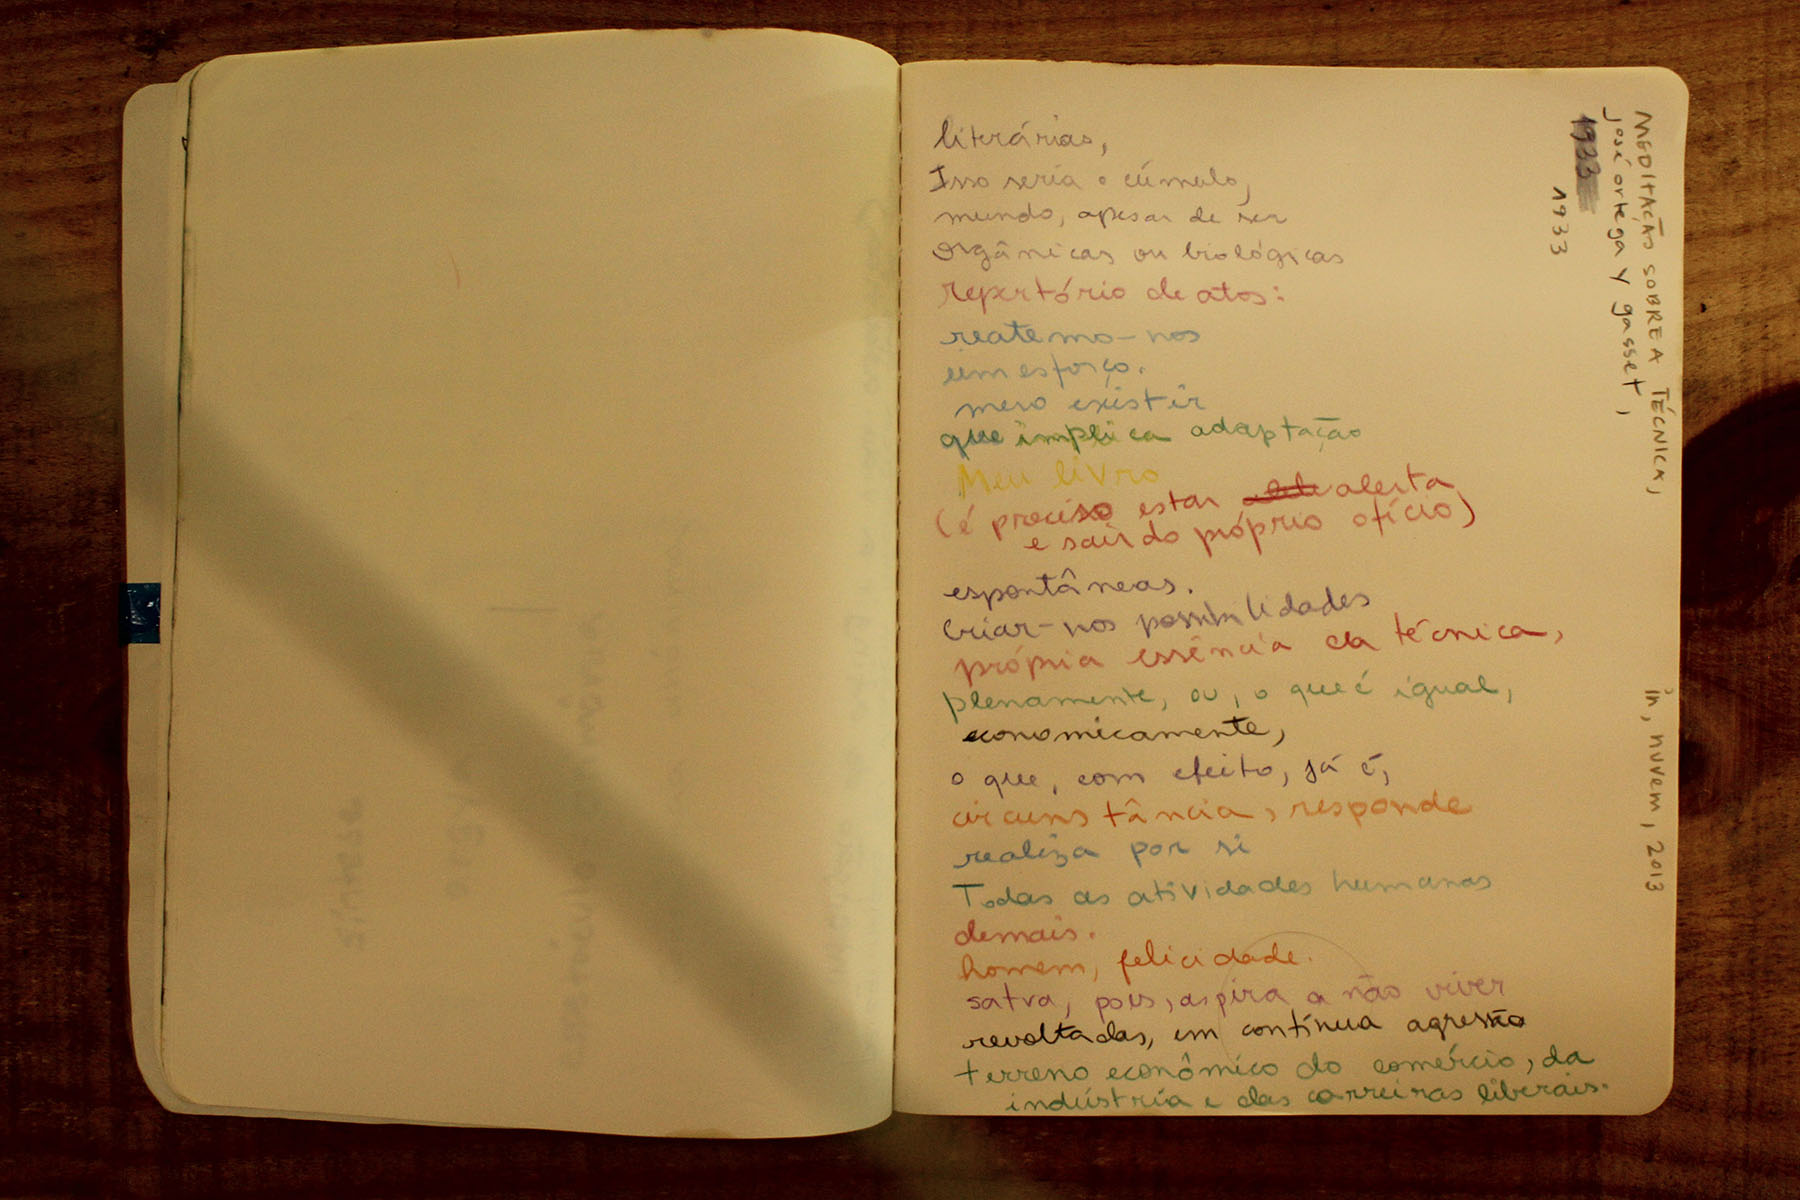 literárias,
Isso seria o cúmulo,
mundo, apesar de ser
orgânicas ou biológicas
repertório de atos:
reatemo-nos
um esforço.
mero existir
que implica adaptação
Meu livro
(é preciso estar alerta
e sair do próprio ofício)
espontâneas.
criar-nos possibilidades
própria essência da técnica,
plenamente, ou, o que é igual,
economicamente,
o que, com efeito, já é,
circunstância, responde
realiza por si
Todas as atividades humanas
demais.
homem, felicidade.
satva, pois, aspira a não viver
revoltadas, em contínua agressão
terreno econômico do comércio, da
indústria e das carreiras liberais.
MEDITAÇÃO SOBRE A TÉCNICA,
josé ortega y gasset,
1933
1933
in, nuvem, 2013